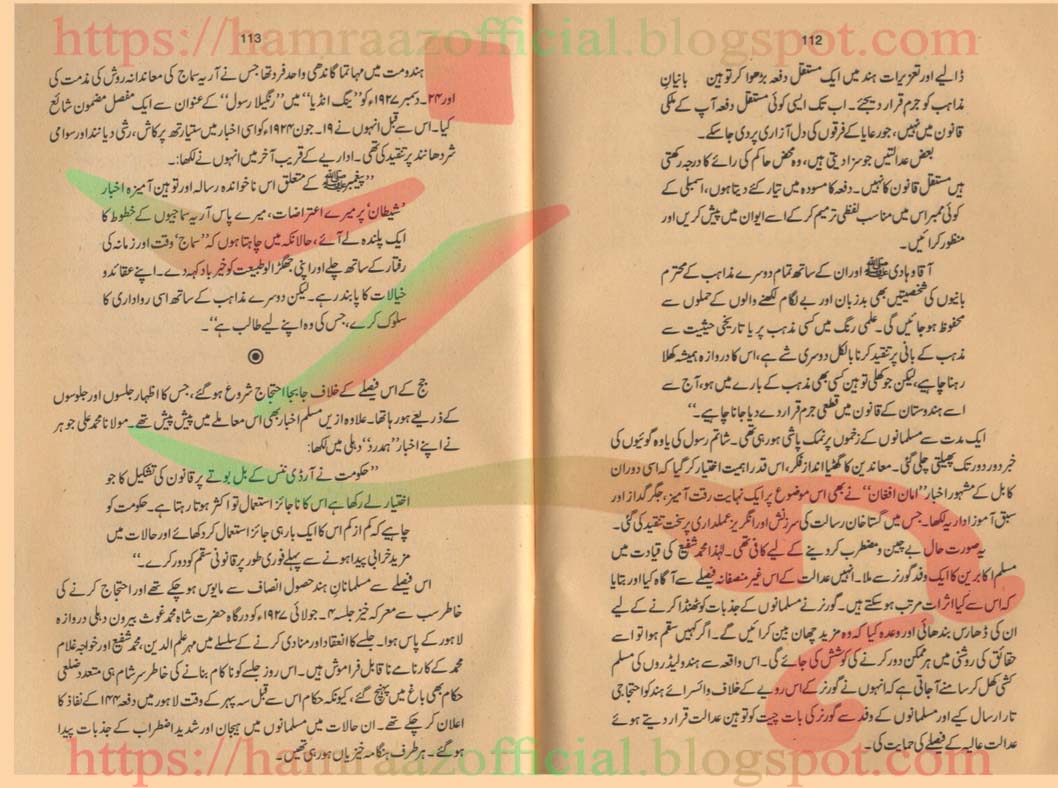 https://hamraazofficial.blogspot.com
112
ڈالیے اور تعزیرات ہند میں ایک مستقل دفعہ بڑھوا کر توہین بانیانِ
مذاہب کو جرم قرار دیجئے۔ اب تک ایسی کوئی مستقل دفعہ آپ کے ملکی
قانون میں نہیں، جو رعایا کے فرقوں کی دل آزاری پر دی جا سکے۔
بعض عدالتیں جو سزا دیتی ہیں، وہ محض حاکم کی رائے کا درجہ رکھتی
ہیں مستقل قانون کا نہیں۔ دفعہ کا مسودہ میں تیار کئے دیتا ہوں، اسمبلی کے
کوئی ممبر اس میں مناسب لفظی ترمیم کر کے اسے ایوان میں پیش کریں اور
منظور کرائیں۔
آقا و ہادی ﷺ اور ان کے ساتھ تمام دوسرے مذاہب کے محترم
بانیوں کی شخصیتیں بھی بدزبان اور بے لگام لکھنے والوں کے حملوں سے
محفوظ ہو جائیں گی۔ علمی رنگ میں کسی مذہب پر یا تاریخی حیثیت سے
مذہب کے بانی پر تنقید کرنا بالکل دوسری شے ہے، اس کا دروازہ ہمیشہ کھلا
رہنا چاہیے، لیکن جو کھلی توہین کسی بھی مذہب کے بارے میں ہو، آج سے
اسے ہندوستان کے قانون میں قطعی جرم قرار دے دیا جانا چاہیے۔“
ایک مدت سے مسلمانوں کے زخموں پر نمک پاشی ہو رہی تھی۔ شاتم رسول کی یاوہ گوئیوں کی
خبر دور دور تک پھیلتی چلی گئی۔ معاندین کا گھٹیا انداز فکر، اس قدر اہمیت اختیار کر گیا کہ اسی دوران
کابل کے مشہور اخبار ”امان افغان“ نے بھی اس موضوع پر ایک نہایت رقت آمیز، جگر گداز اور
سبق آموز اداریہ لکھا۔ جس میں گستاخان رسالت کی سرزنش اور انگریز عملداری پر سخت تنقید کی گئی۔
یہ صورت حال بے چین و مضطرب کر دینے کے لیے کافی تھی۔ لہٰذا محمد شفیع کی قیادت میں
مسلم اکابرین کا ایک وفد گورنر سے ملا۔ انہیں عدالت کے اس غیر منصفانہ فیصلے سے آگاہ کیا اور بتایا
کہ اس سے کیا اثرات مرتب ہو سکتے ہیں۔ گورنر نے مسلمانوں کے جذبات کو ٹھنڈا کرنے کے لیے
ان کی ڈھارس بندھائی اور وعدہ کیا کہ وہ مزید چھان بین کرائیں گے۔ اگر کہیں سقم ہوا تو اسے
حقائق کی روشنی میں ہر ممکن دور کرنے کی کوشش کی جائے گی۔ اس واقعہ سے ہندو لیڈروں کی مسلم
کشی کھل کر سامنے آ جاتی ہے کہ انہوں نے گورنر کے اس رویے کے خلاف وائسرائے ہند کو احتجاجی
تار ارسال کیے اور مسلمانوں کے وفد سے گورنر کی بات چیت کو توہین عدالت قرار دیتے ہوئے
عدالت عالیہ کے فیصلے کی حمایت کی۔
113
ہندومت میں مہاتما گاندھی واحد فرد تھا جس نے آریہ سماج کی معاندانہ روش کی مذمت کی
اور ۲۴۔ دسمبر ۱۹۲۷ء کو ”ینگ انڈیا“ میں ”رنگیلا رسول“ کے عنوان سے ایک مفصل مضمون شائع
کیا۔ اس سے قبل انہوں نے ۱۹۔ جون ۱۹۲۴ء کو اسی اخبار میں ستیارتھ پرکاش، رشی دیانند اور سوامی
شردھانند پر تنقید کی تھی۔ اداریے کے قریب آخر میں انہوں نے لکھا:۔
”پیغمبر ﷺ کے متعلق اس ناخواندہ رسالہ اور توہین آمیزہ اخبار
’شیطان‘ پر میرے اعتراضات، میرے پاس آریہ سماجیوں کے خطوط کا
ایک پلندہ لے آئے، حالانکہ میں چاہتا ہوں کہ ”سماج‘ وقت اور زمانہ کی
رفتار کے ساتھ چلے اور اپنی جھگڑالو طبیعت کو خیرباد کہہ دے۔ اپنے عقائد و
خیالات کا پابند رہے۔ لیکن دوسرے مذاہب کے ساتھ اسی رواداری کا
سلوک کرے، جس کی وہ اپنے لیے طالب ہے“۔
جج کے اس فیصلے کے خلاف جا بجا احتجاج شروع ہو گئے، جس کا اظہار جلسوں اور جلوسوں
کے ذریعے ہو رہا تھا۔ علاوہ ازیں مسلم اخبار بھی اس معاملے میں پیش پیش تھے۔ مولانا محمد علی جوہر
نے اپنے اخبار ”ہمدرد“ دہلی میں لکھا:
”حکومت نے آرڈی ننس کے بل بوتے پر قانون کی تشکیل کا جو
اختیار لے رکھا ہے اس کا ناجائز استعمال تو اکثر ہوتا رہتا ہے۔ حکومت کو
چاہیے کہ کم از کم اس کا ایک بار ہی جائز استعمال کر دکھائے اور حالات میں
مزید خرابی پیدا ہونے سے پہلے فوری طور پر قانونی سقم کو دور کرے۔“
اس فیصلے سے مسلمانانِ ہند حصول انصاف سے مایوس ہو چکے تھے اور احتجاج کرنے کی
خاطر سب سے معرکہ خیز جلسہ ۴۔ جولائی ۱۹۲۷ء کو درگاہ حضرت شاہ محمد غوث بیرون دہلی دروازہ
لاہور کے پاس ہوا۔ جلسے کا انعقاد اور منادی کرنے کے سلسلے میں مہر علم الدین، محمد شفیع اور خواجہ غلام
محمد کے کارنامے ناقابل فراموش ہیں۔ اس روز جلسے کو ناکام بنانے کی خاطر سرشام ہی متعدد ضلعی
حکام بھی باغ میں پہنچ گئے، کیونکہ حکام اس سے قبل سہ پہر کے وقت لاہور میں دفعہ ۱۴۴ کے نفاذ کا
اعلان کر چکے تھے۔ ان حالات میں مسلمانوں میں ہیجان اور شدید اضطراب کے جذبات پیدا
ہو گئے۔ ہر طرف ہنگامہ خیزیاں ہو رہی تھیں۔
https://hamraazofficial.blogspot.com